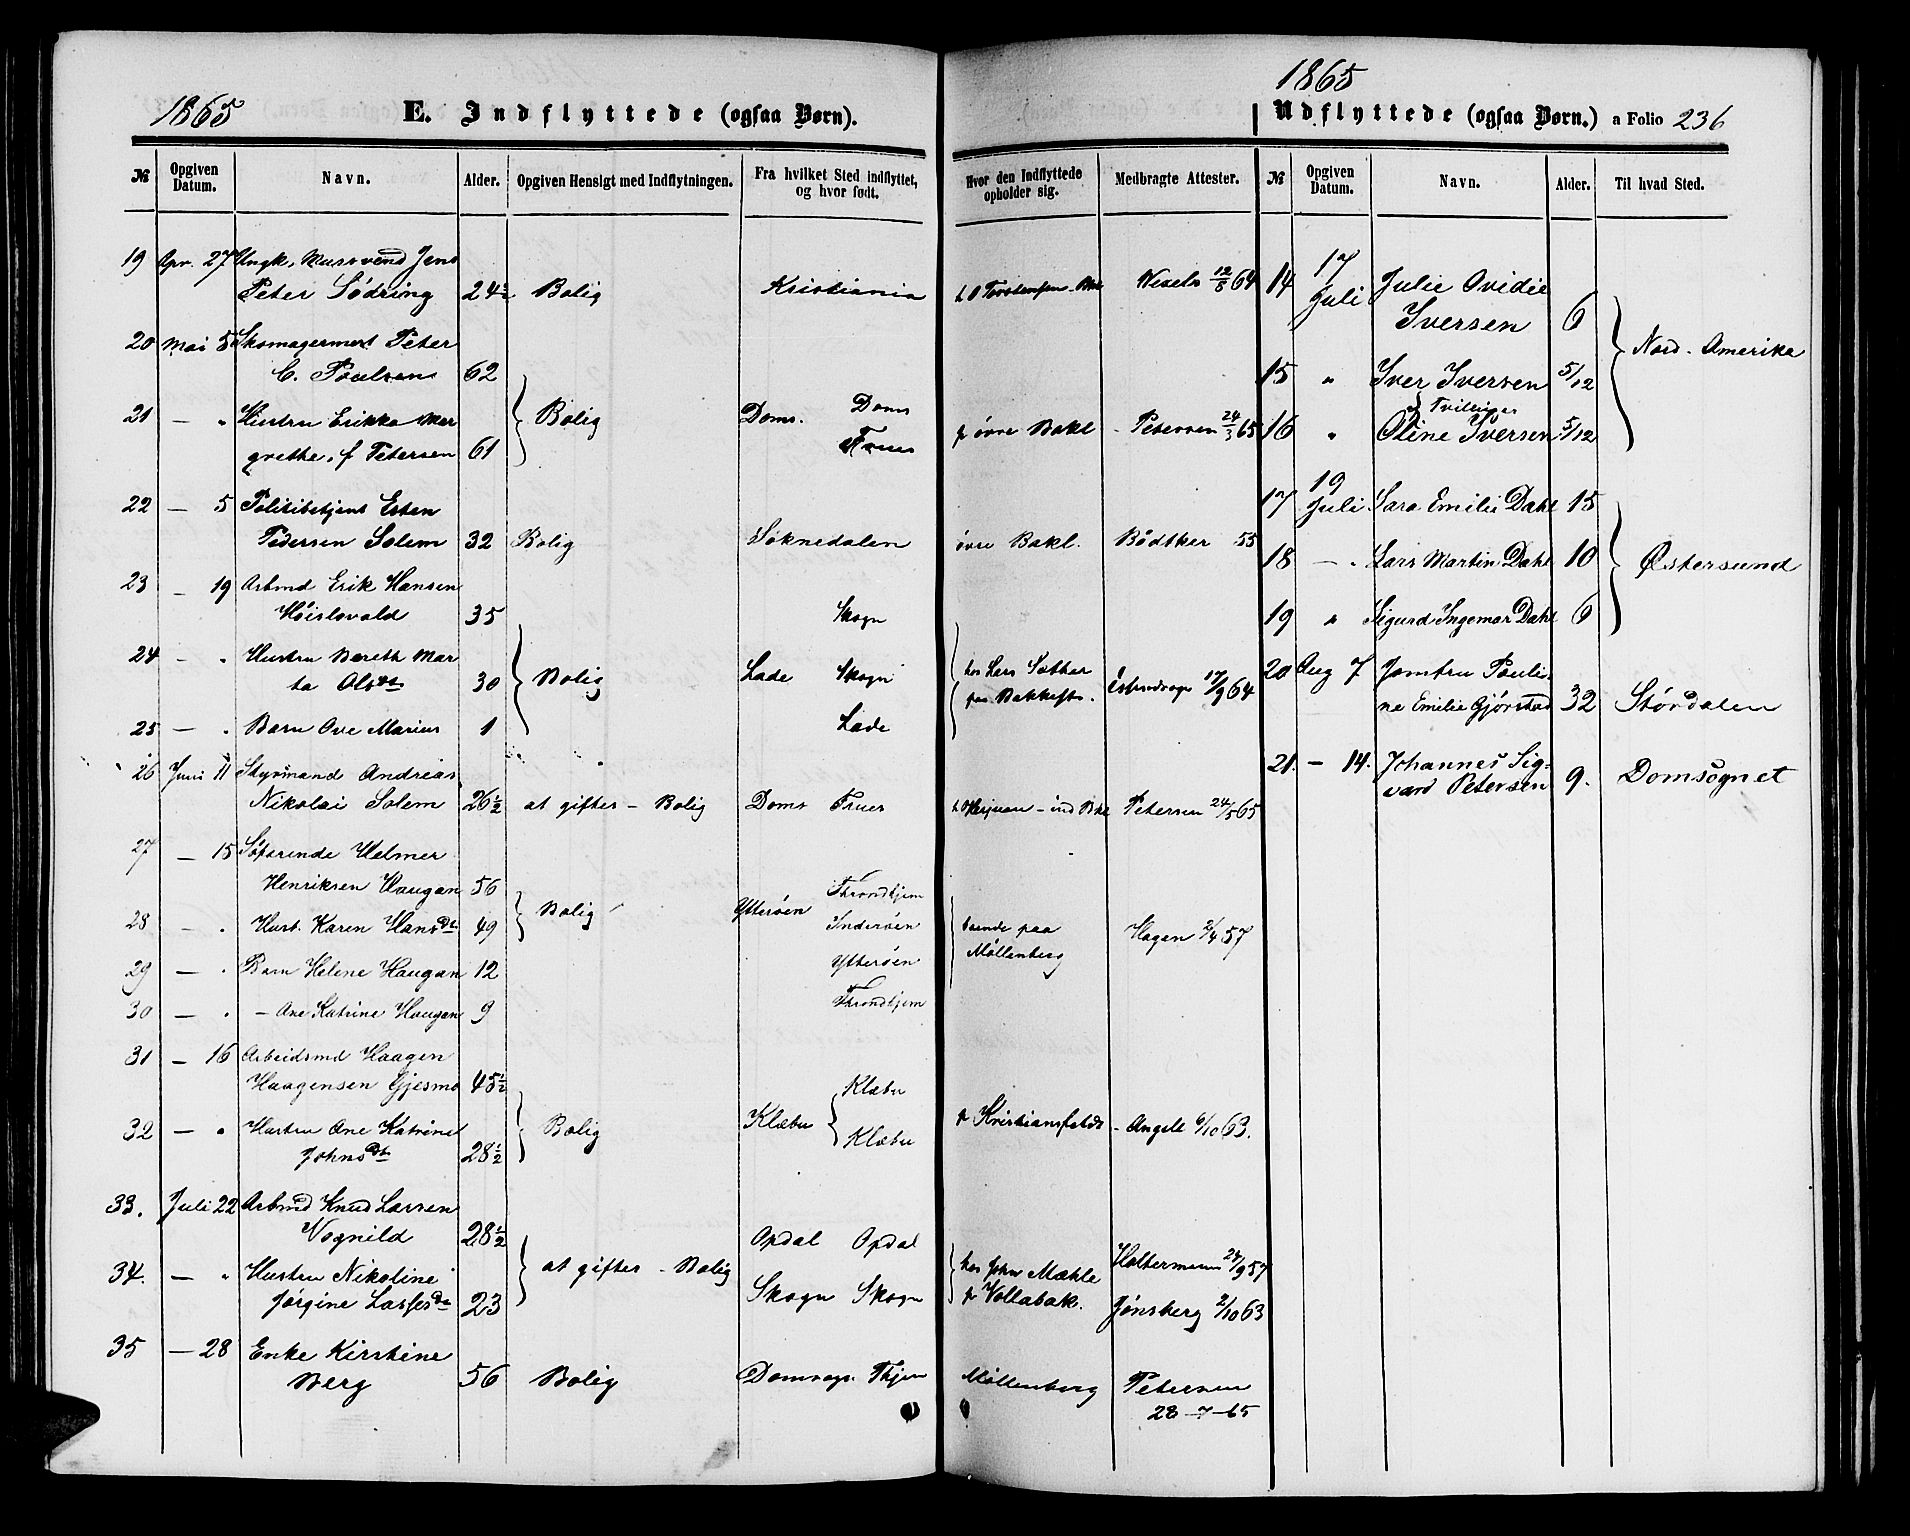 1865 E. Indflyttede (ogsaa Børn).
№ Opgiven Datum. Navn. Alder. Opgiven Hensigt med Indflytningen. Fra hvilket Sted indflyttet, og hvor født.
19 Apr. 27 Ungk. Mursvend Jens
Peter Södring 24½ Bolig Kristiania
20 Mai 5 Skomagermest Peter
C. Poulsen 62
21 — " Hustru Erikka Mar Bolig Doms. Doms
grethe, f Petersen 61 Frues
22 — 5 Politibetjent Esten
Pedersen Solem 32 Bolig Soknedalen
23 — 19 Arbmd Erik Hansen
Höislovald 35 Skogn
24 — " Hustru Bereth Mar
ta Olsdt 30 Bolig Lade Skogn
25 — " Barn Ove Marius 1 Lade
26 Juni 11 Styrmand Andreas
Nikolai Solem 26½ at gifter - Bolig Doms Frues
27 — 15 Söfarende Helmer
Henriksen Haugan 56 Throndhjem
28 — " Hust. Karen Hansdt 49 Bolig Ytteröen Inderöen
29 — " Barn Helene Haugan 12 Ytteröen
30 — " — Ane Katrine Haugan 9 Throndhjem
31 — 16 Arbeidsmd Haagen
Haagensen Gjesmo 45½ Klæbu
32 — " Hustru Ane Katrine Bolig Klæbu Klæbu
Johnsdt 28½
33. Juli 22 Arbmd Knud Larsen
Vognild 28½ Opdal Opdal
34. — " Hustru Nikoline at gifter - Bolig
Jørgine Lassesdt 23 Skogn Skogn
35 — 28 Enke Kirstine
Berg 56 Bolig Domsogn. Thjem
1865
Udflyttede (ogsaa Børn.) a Folio 236
Hvor den Indflyttede opholder sig. Medbragte Attester. № Opgiven Datum. Navn. Alder. Til hvad Sted.
Wexels 12/8 64 14 17 Juli Julie Ovidie
Iversen 6
Nord-Amerika
15 " Iver Iversen 5/12
Tvillinger
p övre Bakl - Petersen 24/3 65 16 " Oline Iversen 5/12
17 19 Juli Sara Emilie Dahl 15
övre Bakl. Bödtker 55
18 — " Lars Martin Dahl 10 Østersund
19 " Sigurd Ingemar Dahl 6
hos Lars Sæther 20 Aug 7 Jomfru Pauli-
paa Bakkeft. 17/9 64 ne Emilie Gjørstad 32 Stördalen
21. — 14. Johannes Sig-
vard Petersen 9. Domsognet
ind Bkl Petersen 24/5 65
boende paa Hagen 2/4 57
Möllenberg
p Kristiansfelds - Angell 6/10 63.
hos John Mæhle Holtermann 24/9 57
p Vollabak. Jönsberg 2/10 63
Möllenberg Petersen
28-7-65